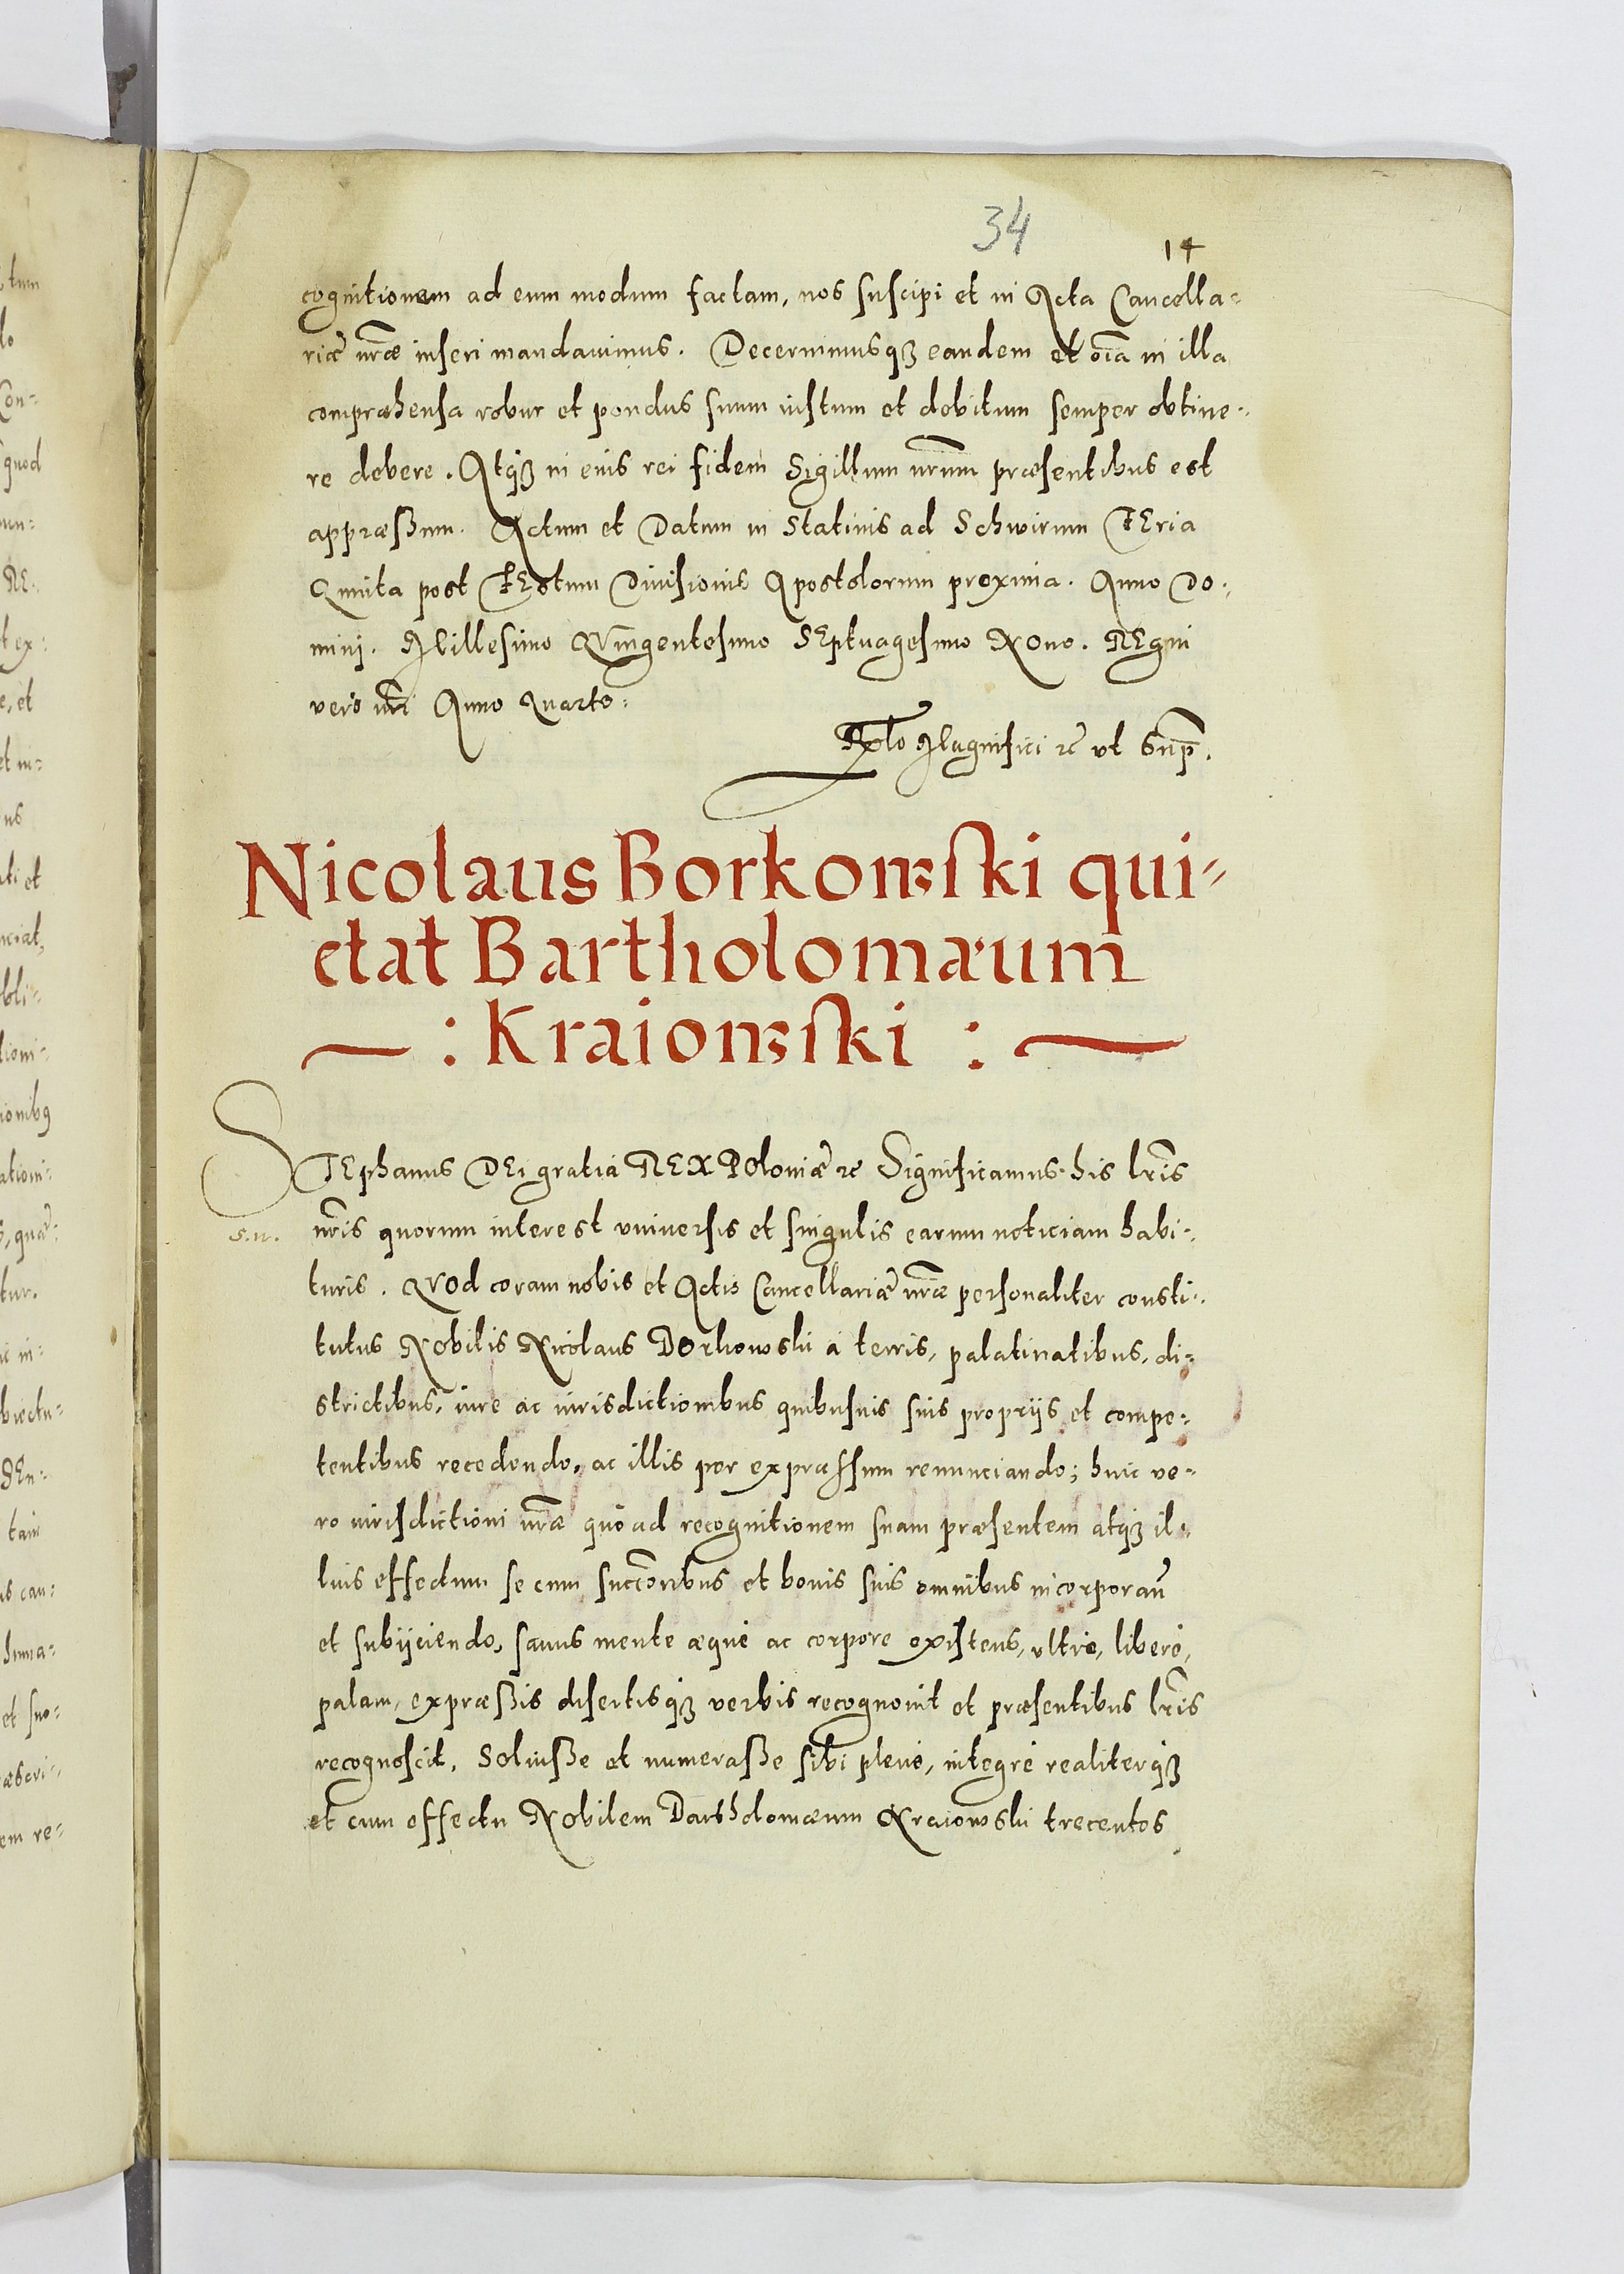 34
14
cognitionem ad eum modum factam, nos suscipi et in Acta Cancella-
riae nrae inseri mandavimus. Decernimusq eandem et oia in illa
compraehensa robur et pondus suum iustum et debitum semper obtine-
re debere. Atq in eius rei fidem Sigillum nrum praesentibus est
appraeßum. Actum et Datum in Stativis ad Schwirum FEria
Quinta post FEstum Divisionis Apostolorum proxima. Anno Do-
minj. Millesimo QVingentesimo SEptuagesimo Nono. REgni
vero nri Anno Quarto:
Rlo Magnifici rc ut Sup.
Nicolaus Borkowski qui-
etat Bartholomaeum
: Kraiowski :
STEphanus DEi gratia REX POloniae rc Significamus his lris
s.n.
nris quorum interest vniversis et singulis earum noticiam habi-
turis. QVod coram nobis et Actis Cancellariae nrae personaliter consti-
tutus Nobilis Nicolaus Borkowski a terris, palatinatibus, di-
strictibus, iure ac iurisdictionibus quibusuis suis proprijs et compe-
tentibus recedendo, ac illis per expraessum renunciando; huic ve-
ro iurisdictioni nrae quo ad recognitionem suam praesentem atq il-
lius effectum se cum succoribus et bonis suis omnibus incorporan
et subijciendo, sanus mente aeque ac corpore existens, ultro, libere,
palam, expraeßis disertisq verbis recognovit et praesentibus lris
recognoscit, Solviße et numeraße sibi plene, integre realiterq
et cum effectu Nobilem Bartholomaeum Kraiowski trecentos